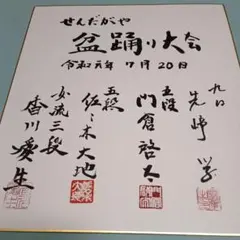 せんだがや
盆踊り大会
令和元年7月20日
九口
先崎 学
五段
門倉啓太
五段
佐々木大地
女流三段
香川愛生